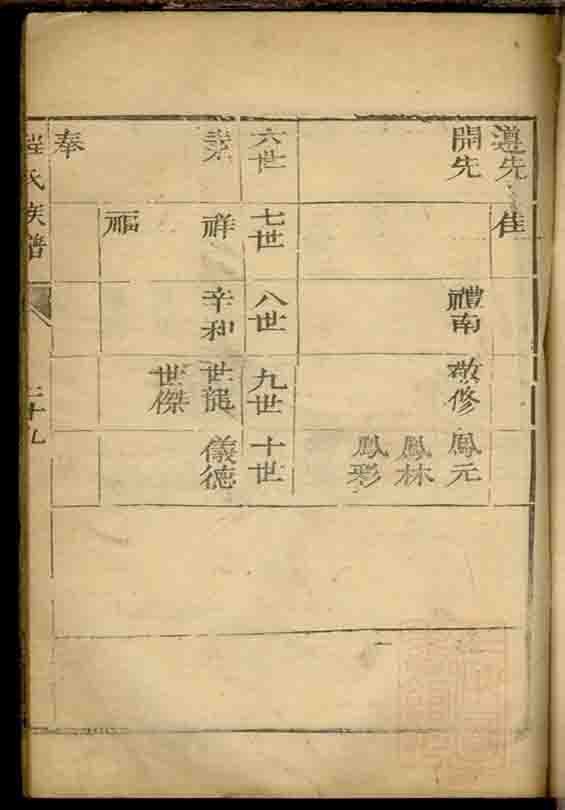 遵先
佳
開先
禮南
敬修
鳳元
鳳林
鳳彩
六世
七世
八世
九世
十世
業
祥
辛和
世龍
儀德
世傑
福
奉
程氏族譜
二十九